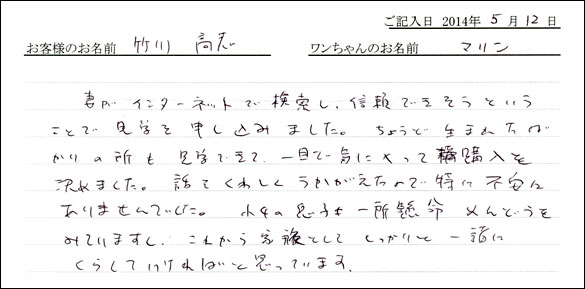 ご記入日 2014年 5月 12日
お客様のお名前 竹川 高志 ワンちゃんのお名前 マリン
妻がインターネットで検索し、信頼できそうという
ことで見学を申し込みました。ちょうど生まれたば
かりの所も見学できて、一目で気に入って購入を
決めました。話でくわしくうかがえたので特に不安は
ありませんでした。小4の息子も一所懸命めんどうを
みていますし、これから家族としてしっかりと一諸に
くらしていければと思っています。